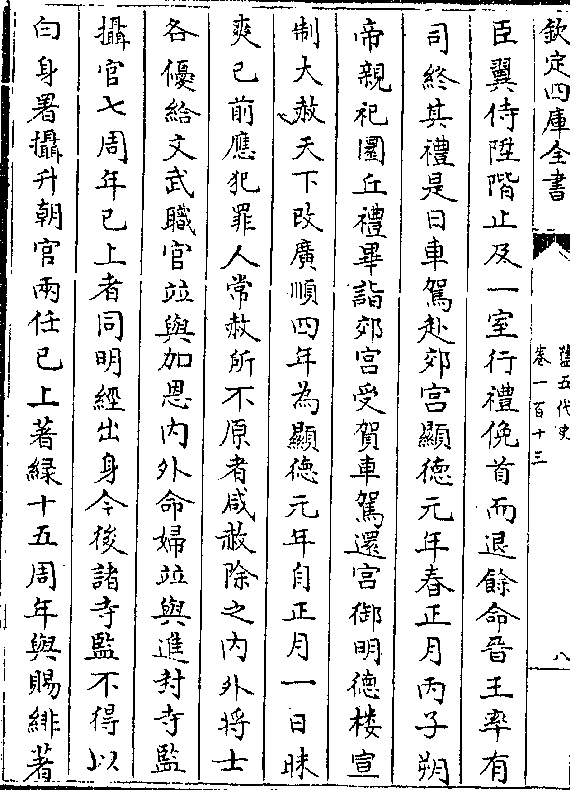 欽定四庫全書
舊五代史
卷一百十三
八
臣翼侍陞階止及一室行禮俛首而退餘命晉王率有
司終其禮是日車駕赴郊宫顯徳元年春正月丙子朔
帝親祀圜丘禮畢詣郊宫受賀車駕還宫御明徳楼宣
制大赦天下改廣順四年為顯徳元年自正月一日昧
爽已前應犯罪人常赦所不原者咸赦除之内外将士
各優給文武職官竝與加恩内外命婦竝與進封寺監
攝官七周年已上者同明經出身今後諸寺監不得以
白身署攝升朝官兩任已上著緑十五周年與賜緋著